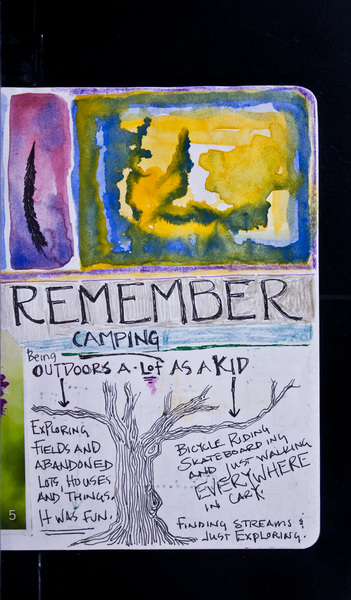 REMEMBER
CAMPING
Being
OUTDOORS A LOT AS A KID
EXPLORING
FIELDS AND
ABANDONED
LOTS, HOUSES
AND THINGS.
IT WAS FUN.
BICYCLE RIDING
SKATEBOARDING
AND JUST WALKING
EVERYWHERE
IN CARY.
FINDING STREAMS &
JUST EXPLORING.
5